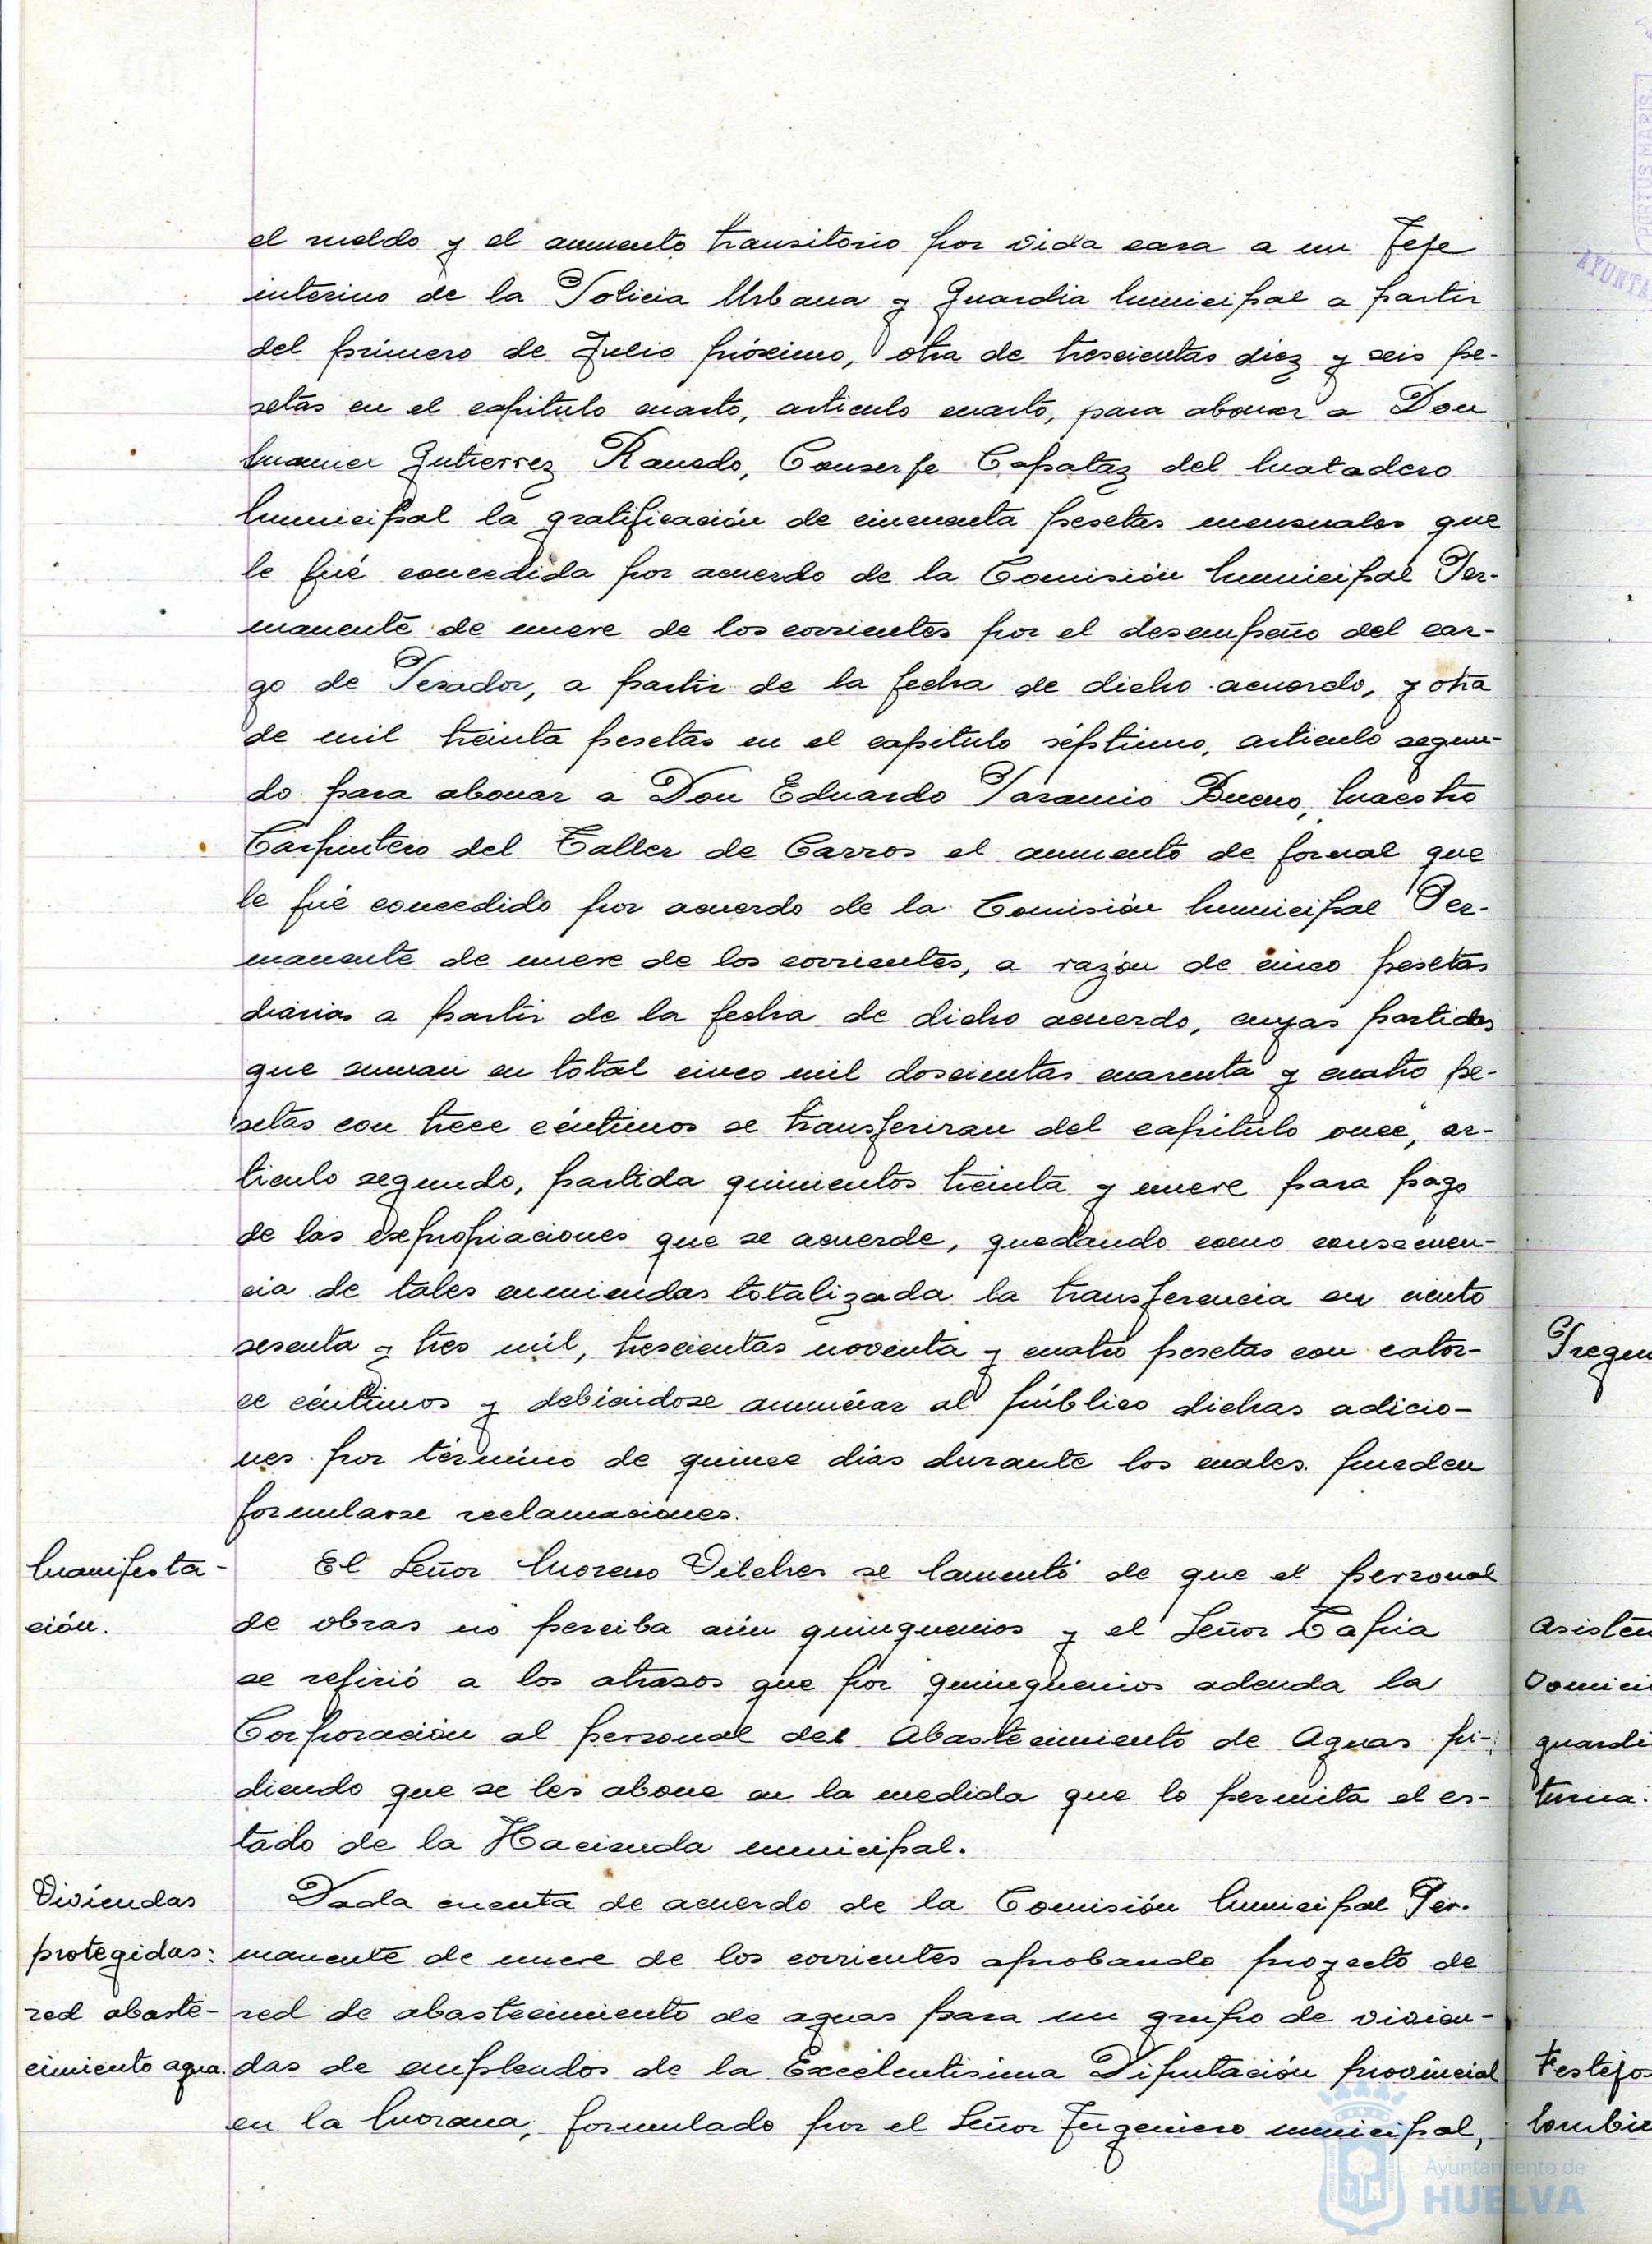 el sueldo y el aumento transitorio por vida cara a un Jefe
interino de la Policia Urbana y Guardia Municipal a partir
del primero de Julio próximo, otra de trescientas diez y seis pe-
setas en el capitulo cuarto, articulo cuarto, para abonar a Don
Manuel Gutierrez Ranedo, Conserje Capataz del Matadero
Municipal la gratificación de cincuenta pesetas mensuales que
le fué concedida por acuerdo de la Comisión Municipal Per-
manente de nueve de los corrientes por el desempeño del car-
go de Pesador, a partir de la fecha de dicho acuerdo, y otra
de mil treinta pesetas en el capitulo séptimo, articulo segun-
do para abonar a Don Eduardo Paramio Bueno, Maestro
Carpintero del Taller de Carros el aumento de jornal que
le fué concedido por acuerdo de la Comisión Municipal Per-
manente de nueve de los corrientes, a razón de cinco pesetas
diarias a partir de la fecha de dicho acuerdo, cuyas partidas
que suman en total cinco mil doscientas cuarenta y cuatro pe-
setas con trece céntimos se transferiran del capitulo once, ar-
ticulo segundo, partida quinientos treinta y nueve para pago
de las expropiaciones que se acuerde, quedando como consecuen-
cia de tales enmiendas totalizada la transferencia en ciento
sesenta y tres mil, trescientas noventa y cuatro pesetas con cator-
ce céntimos y debiéndose anunciar al público dichas adicio-
nes por término de quince días durante los cuales pueden
formularse reclamaciones.
Manifesta-
ción.
El Señor Moreno Vilches se lamentó de que el personal
de obras no perciba aún quinquenios y el Señor Tapia
se refirió a los atrasos que por quinquenios adeuda la
Corporación al personal del Abastecimiento de Aguas pi-
diendo que se les abone en la medida que lo permita el es-
tado de la Hacienda municipal.
Viviendas
protegidas:
red abaste-
cimiento agua.
Dada cuenta de acuerdo de la Comisión Municipal Per-
manente de nueve de los corrientes aprobando proyecto de
red de abastecimiento de aguas para un grupo de vivien-
das de empleados de la Excelentisima Diputación provincial
en la Morana, formulado por el Señor Ingeniero municipal,
Pregun
Asisten
Domici
guardi
turna.
Festejos
Lombi
AYUNTA
Ayuntamiento de
HUELVA